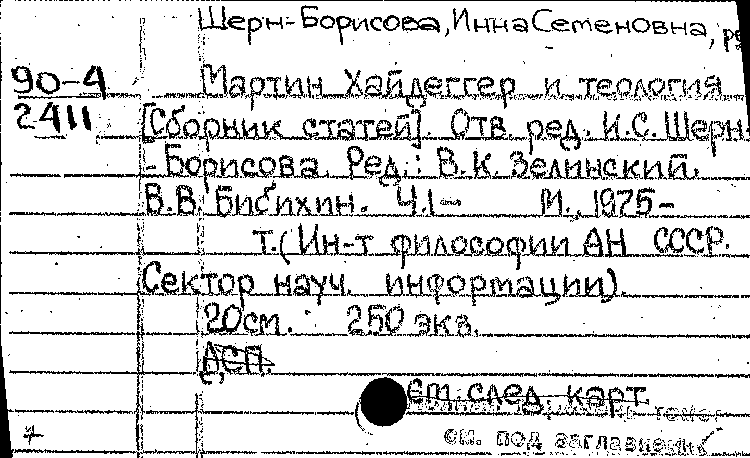 Шерн-Борисова, Инна Семеновна,
90-4 Мартин Хайдеггер и теология
2411 [Сборник статей]. Отв. ред. И.С. Шерн-
-Борисова. Ред.: В.К. Зелинский.
В.В. Бибихин. Ч.1- М., 1975-
т. (Ин-т философии АН СССР.
Сектор науч. информации).
20см. 250 экз.
ДСП.
См. след. карт.
см. под заглавием